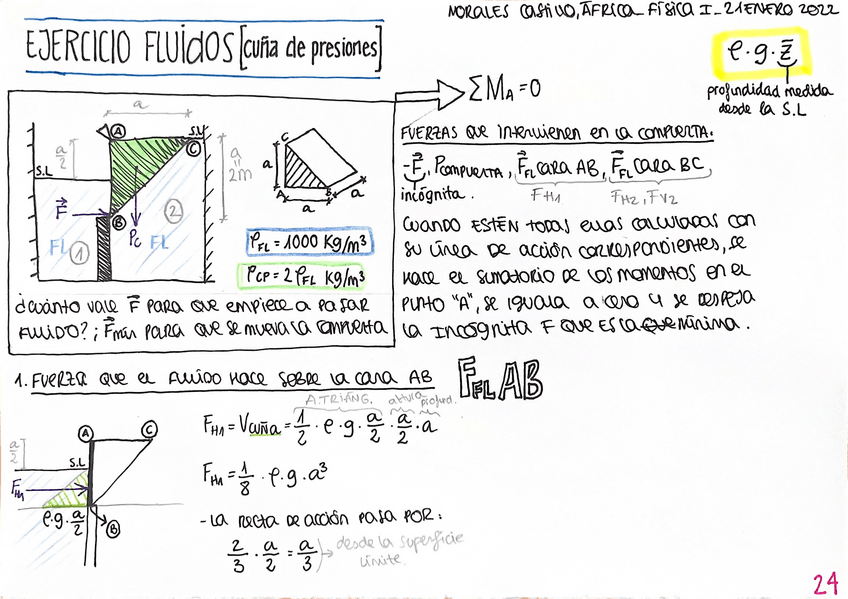 MORALES CASTILLO, ÁFRICA_ FÍSICA I_ 21 ENERO 2022
EJERCICIO FLUIDOS [cuña de presiones]
ρ·g·z̄
profundidad medida
desde la S.L
ΣM_A = 0
a
a/2
S.L
A
S.L
C
a = 2m
F⃗
B
P_C
FL 1
FL 2
C
a
A
a
B
a
ρ_FL = 1000 Kg/m³
ρ_CP = 2ρ_FL Kg/m³
¿cuánto vale F⃗ para que empiece a pasar
fluido?; F⃗min para que se mueva la compuerta
FUERZAS QUE INTERVIENEN EN LA COMPUERTA.
- F⃗, P compuerta, F⃗_FL cara AB, F⃗_FL cara BC
incógnita. F_H1 F_H2, F_V2
CUANDO ESTÉN TODAS ELLAS CALCULADAS CON
SU LÍNEA DE ACCIÓN CORRESPONDIENTES, SE
HACE EL SUMATORIO DE LOS MOMENTOS EN EL
PUNTO "A", SE IGUALA A CERO Y SE DESPEJA
LA INCÓGNITA F QUE ES LA QUE MÍNIMA.
1. FUERZA QUE EL FLUIDO HACE SOBRE LA CARA AB
F_FL AB
a/2
A
C
S.L
F_H1
ρ·g·a/2
B
A. TRIÁNG. altura profund.
F_H1 = V cuña = 1/2 · ρ · g · a/2 · a/2 · a
F_H1 = 1/8 · ρ · g · a³
- LA RECTA DE ACCIÓN PASA POR:
2/3 · a/2 = a/3 → desde la superficie
límite.
24